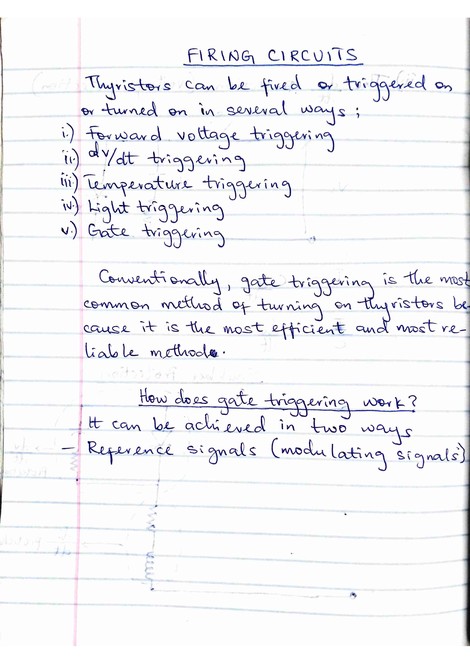 FIRING CIRCUITS
Thyristors can be fired or triggered on
or turned on in several ways;
i.) Forward voltage triggering
ii.) dv/dt triggering
iii) Temperature triggering
iv.) Light triggering
v.) Gate triggering
Conventionally, gate triggering is the most
common method of turning on thyristors be-
cause it is the most efficient and most re-
liable method.
How does gate triggering work?
It can be achieved in two ways
- Reference signals (modulating signals)